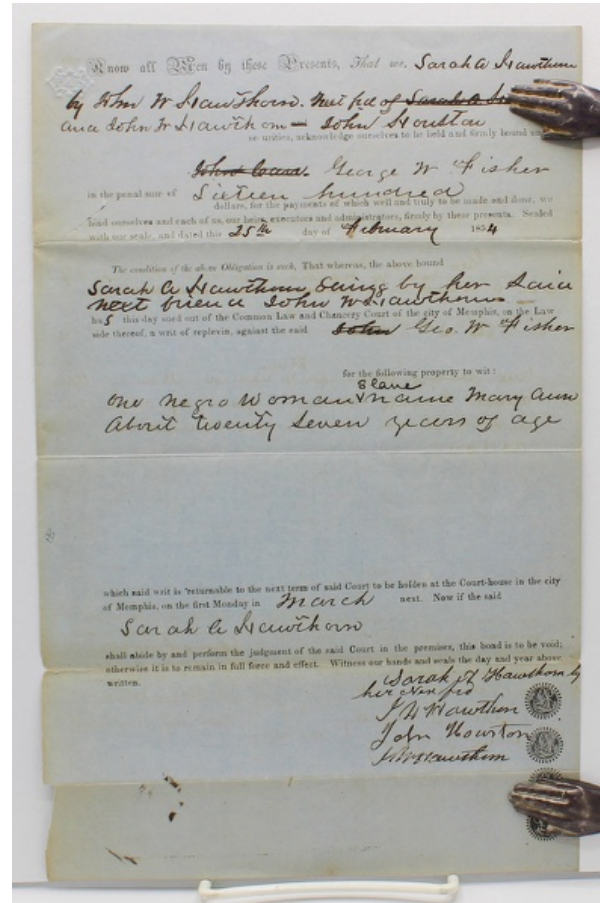 Know all Men by these Presents, That we, Sarah A Hawthorn
by John W Hawthorn. Next frd of Sarah A
and John W Hawthorn - John Houston
securities, acknowledge ourselves to be held and firmly bound unto
John George W Fisher
in the penal sum of Sixteen hundred
dollars, for the payments of which well and truly to be made and done, we
bind ourselves and each of us, our heirs, executors and administrators, firmly by these presents. Sealed
with our seals, and dated this 25th day of February 1854
The condition of the above Obligation is such, That whereas, the above bound
Sarah A Hawthorn, suing by her said
next friend John W Hawthorn
has this day sued out of the Common Law and Chancery Court of the city of Memphis, on the Law
side thereof, a writ of replevin, against the said John Geo. W Fisher
for the following property to wit:
slave
one negro woman name Mary Ann
About twenty seven years of age
which said writ is returnable to the next term of said Court to be holden at the Court-house in the city
of Memphis, on the first Monday in March next. Now if the said
Sarah A Hawthorn
shall abide by and perform the judgment of the said Court in the premises, this bond is to be void;
otherwise it is to remain in full force and effect. Witness our hands and seals the day and year above
written.
Sarah A Hawthorn by
her nex frd
J W Hawthorn
John Houston
J W Hawthorn